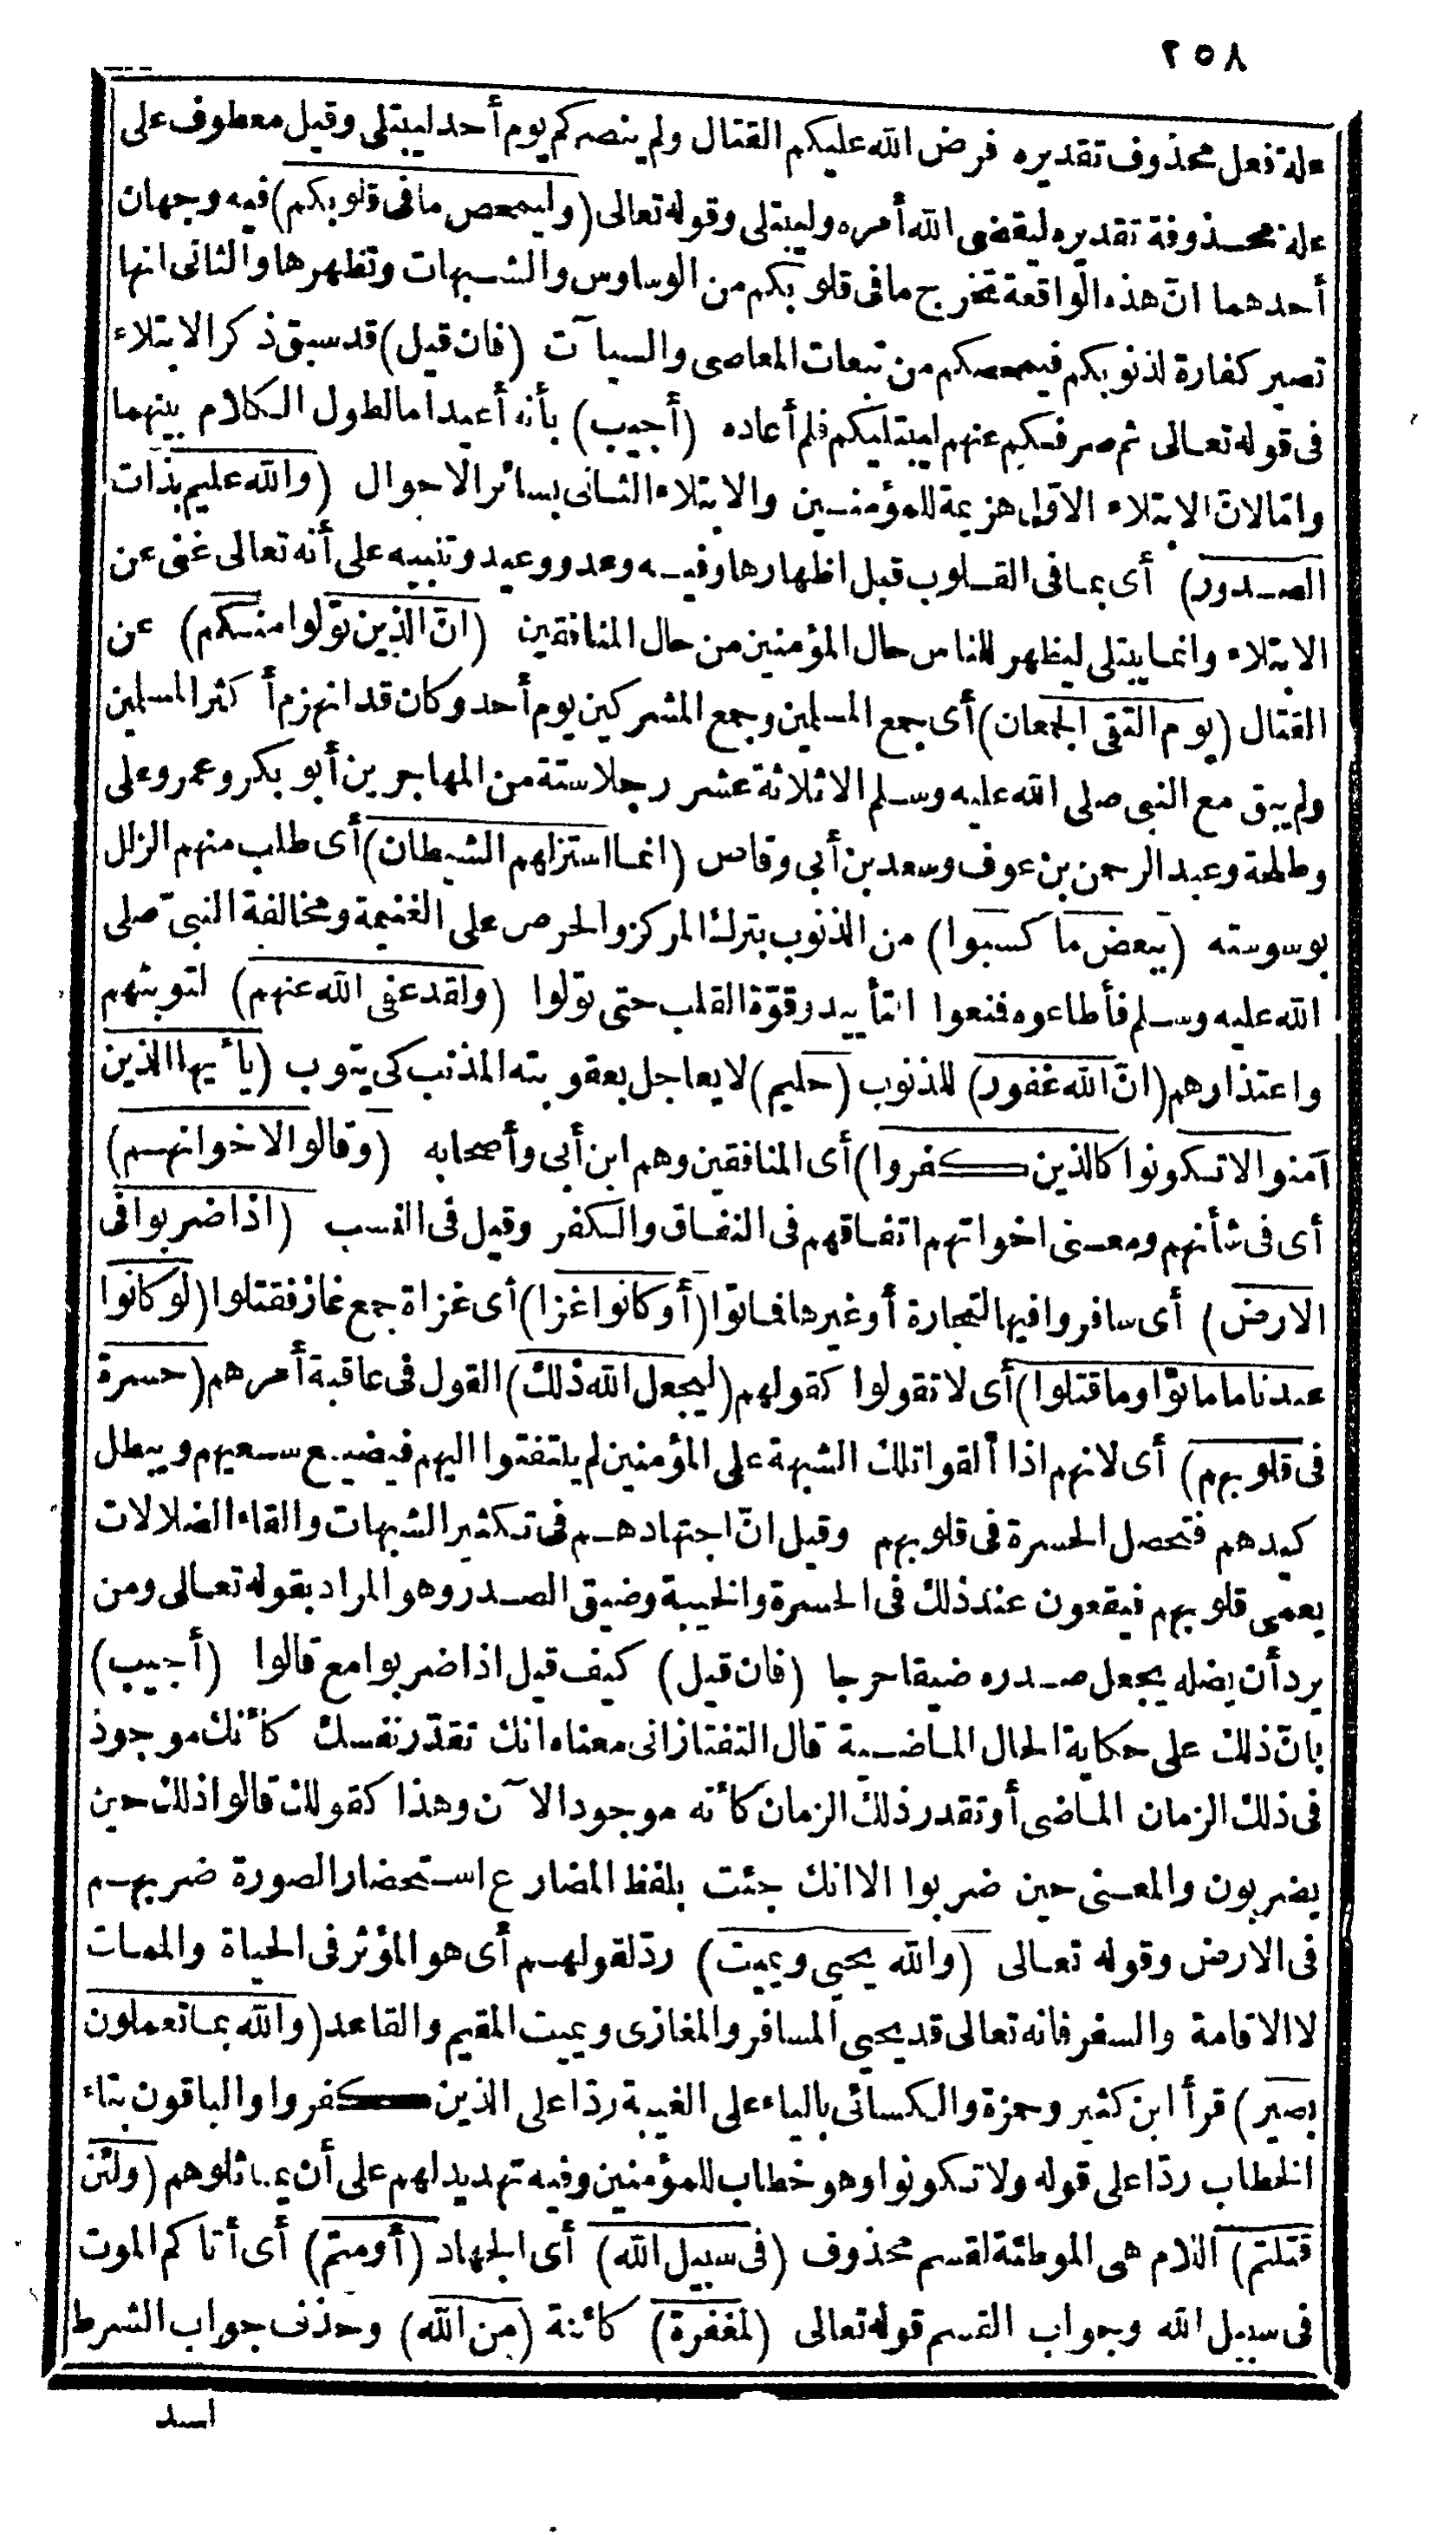 ٢٥٨
علة فعل محذوف تقديره فرض الله عليكم القتال ولم ينصركم يوم أحد ليبتلى وقيل معطوف على
علة محذوفة تقديره ليقضى الله أمره وليبتلى وقوله تعالى (وليمحص ما فى قلوبكم) فيه وجهان
أحدهما انّ هذه الواقعة تخرج ما فى قلوبكم من الوساوس والشبهات وتطهرها والثانى انها
تصير كفارة لذنوبكم فيمحصكم من تبعات المعاصى والسيآت (فان قيل) قد سبق ذكر الابتلاء
فى قوله تعالى ثم صرفكم عنهم ليبتليكم فلم أعاده (أجيب) بأنه أعيد اما لطول الكلام بينهما
وامّا لانّ الابتلاء الاوّل هزيمة للمؤمنين والابتلاء الثانى بسائر الاحوال (والله عليم بذات
الصدور) أى بما فى القلوب قبل اظهارها وفيه وعد ووعيد وتنبيه على أنه تعالى غنى عن
الابتلاء وانما يبتلى ليظهر للناس حال المؤمنين من حال المنافقين (انّ الذين تولوا منكم) عن
القتال (يوم التقى الجمعان) أى جمع المسلمين وجمع المشركين يوم أحد وكان قد انهزم أكثر المسلمين
ولم يبق مع النبى صلى الله عليه وسلم الا ثلاثة عشر رجلا ستة من المهاجرين أبو بكر وعمر وعلى
وطلحة وعبد الرحمن بن عوف وسعد بن أبي وقاص (انما استزلهم الشيطان) أى طلب منهم الزلل
بوسوسته (ببعض ما كسبوا) من الذنوب بترك المركز والحرص على الغنيمة ومخالفة النبىّ صلى
الله عليه وسلم فأطاعوه فنعوا التأييد وقوّة القلب حتى تولوا (ولقد عفى الله عنهم) لتوبتهم
واعتذارهم (انّ الله غفور) للذنوب (حليم) لا يعاجل بعقوبته المذنب كى يتوب (يا أيها الذين
آمنوا لا تكونوا كالذين كفروا) أى المنافقين وهم ابن أبى وأصحابه (وقالوا لاخوانهم)
أى فى شأنهم ومعنى اخواتهم اتفاقهم فى النفاق والكفر وقيل فى النسب (اذا ضربوا فى
الارض) أى سافروا فيها لتجارة أو غيرها فماتوا (أو كانوا غزا) أى غزاة جمع غاز فقتلوا (لو كانوا
عندنا ما ماتوا وما قتلوا) أى لا تقولوا كقولهم (ليجعل الله ذلك) القول فى عاقبة أمرهم (حسرة
فى قلوبهم) أى لانهم اذا ألقوا تلك الشبهة على المؤمنين لم يلتفتوا اليهم فيضيع سعيهم ويبطل
كيدهم فتحصل الحسرة فى قلوبهم وقيل انّ اجتهادهم فى تكثير الشبهات والقاء الضلالات
يعمى قلوبهم فيقعون عند ذلك فى الحسرة والخيبة وضيق الصدر وهو المراد بقوله تعالى ومن
يرد أن يضله يجعل صدره ضيقا حرجا (فان قيل) كيف قيل اذا ضربوا مع قالوا (أجيب)
بانّ ذلك على حكاية الحال الماضية قال التفتازانى معناه انك تقدّر نفسك كأنك موجود
فى ذلك الزمان الماضى أو تقدر ذلك الزمان كأنه موجود الآن وهذا كقولك قالوا ذلك حين
يضربون والمعنى حين ضربوا الا انك جئت بلفظ المضارع استحضار الصورة ضربهم
فى الارض وقوله تعالى (والله يحيى ويميت) ردّ لقولهم أى هو المؤثر فى الحياة والممات
لا الاقامة والسفر فانه تعالى قد يحيى المسافر والمغازى ويميت المقيم والقاعد (والله بما تعملون
بصير) قرأ ابن كثير وحمزة والكسائى بالياء على الغيبة ردّا على الذين كفروا والباقون بتاء
الخطاب ردّا على قوله ولا تكونوا وهو خطاب للمؤمنين وفيه تهديد لهم على أن يماثلوهم (ولئن
قتلتم) اللام هى الموطئة لقسم محذوف (فى سبيل الله) أى الجهاد (أو متم) أى أتاكم الموت
فى سبيل الله وجواب القسم قوله تعالى (لمغفرة) كائنة (من الله) وحذف جواب الشرط
لسد